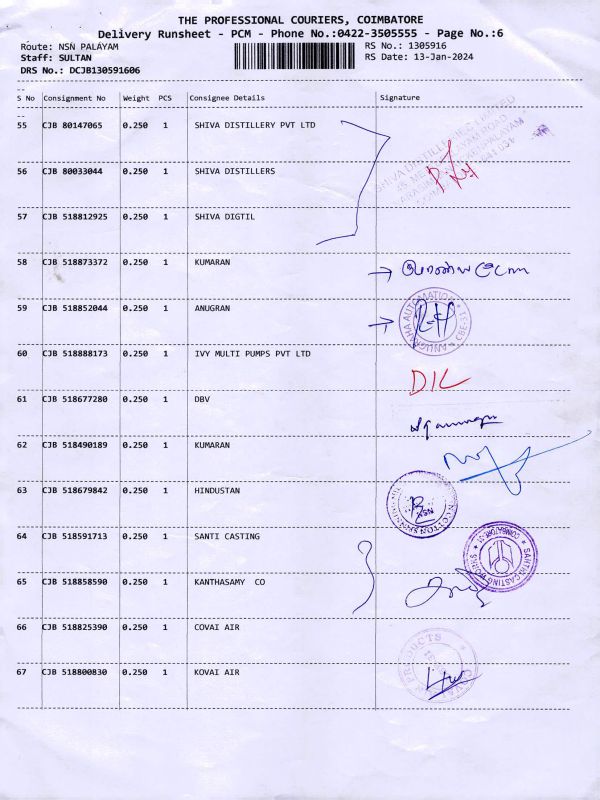 THE PROFESSIONAL COURIERS, COIMBATORE
Delivery Runsheet - PCM - Phone No.:0422-3505555 - Page No.:6
Route: NSN PALAYAM RS No.: 1305916
Staff: SULTAN RS Date: 13-Jan-2024
DRS No.: DCJB130591606
S No Consignment No Weight PCS Consignee Details Signature
55 CJB 80147065 0.250 1 SHIVA DISTILLERY PVT LTD
56 CJB 80033044 0.250 1 SHIVA DISTILLERS
57 CJB 518812925 0.250 1 SHIVA DIGTIL
58 CJB 518873372 0.250 1 KUMARAN
59 CJB 518852044 0.250 1 ANUGRAN
60 CJB 518888173 0.250 1 IVY MULTI PUMPS PVT LTD
61 CJB 518677280 0.250 1 DBV
62 CJB 518490189 0.250 1 KUMARAN
63 CJB 518679842 0.250 1 HINDUSTAN
64 CJB 518591713 0.250 1 SANTI CASTING
65 CJB 518858590 0.250 1 KANTHASAMY CO
66 CJB 518825390 0.250 1 COVAI AIR
67 CJB 518800830 0.250 1 KOVAI AIR